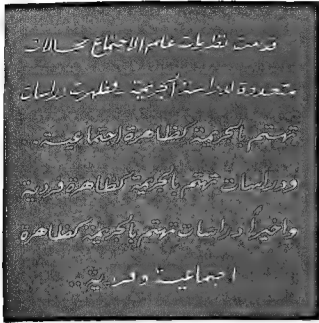 قدمت نظريات علم الاجتماع مجالات
متعددة لدراسة الجريمة فظهرت دراسات
تهتم بالجريمة كظاهرة اجتماعية..
ودراسات تهتم بالجريمة كظاهرة فردية
واخيراً دراسات تهتم بالجريمة كظاهرة
اجتماعية وفردية..